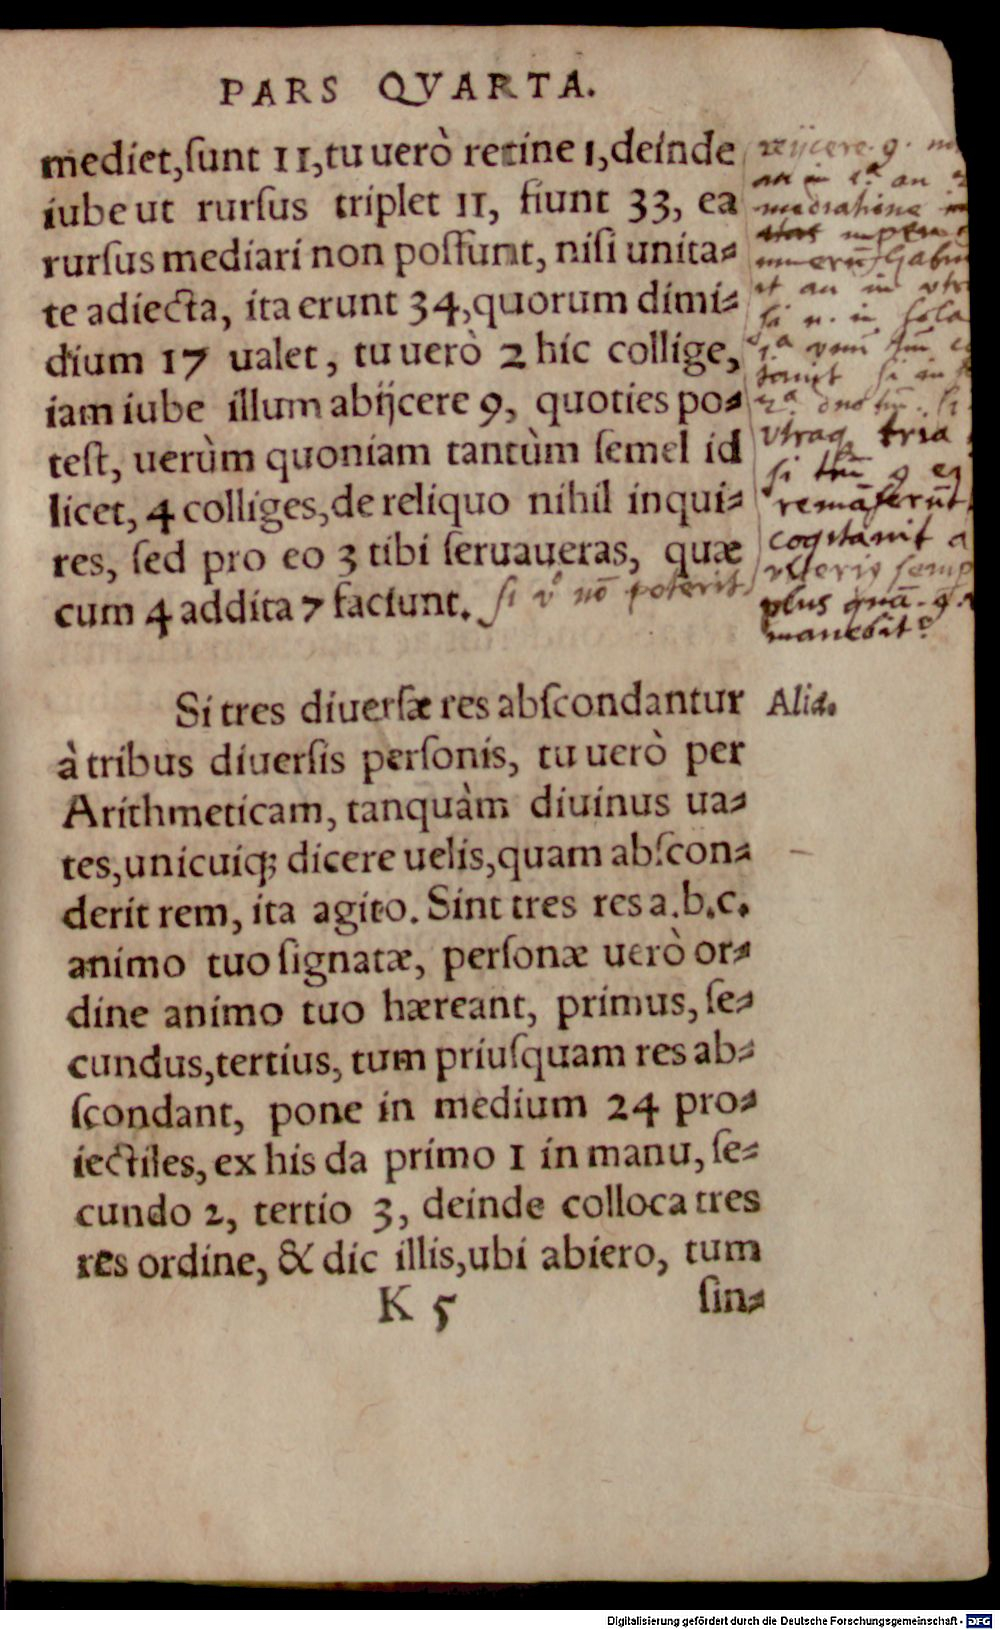 PARS QVARTA.
mediet,ſunt 11,tu uerò retine 1,deinde
iube ut rurſus triplet 11, fiunt 33, ea
rurſus mediari non poſſunt, niſi unita⸗
te adiecta, ita erunt 34,quorum dimi⸗
dium 17 ualet, tu uerò 2 hic collige,
iam iube illum abijcere 9, quoties po⸗
teſt, uerùm quoniam tantùm ſemel id
licet, 4 colliges,de reliquo nihil inqui⸗
res, ſed pro eo 3 tibi ſeruaueras, quæ
cum 4 addita 7 faciunt. ſi v° nō poterit
reijcere .9.
an in 1ª an
mediatione
an in
ſi n. in ſola
1ª
ſi in
2ª
vtraq tria
ſi 9
remāſerūt
cogitavit
plus quā .9.
manebit
Si tres diuerſæ res abſcondantur
Alid.
à tribus diuerſis perſonis, tu uerò per
Arithmeticam, tanquàm diuinus ua⸗
tes,unicuiq; dicere uelis,quam abſcon⸗
derit rem, ita agito. Sint tres res a.b.c.
animo tuo ſignatæ, perſonæ uerò or⸗
dine animo tuo hæreant, primus, ſe⸗
cundus,tertius, tum priuſquam res ab⸗
ſcondant, pone in medium 24 pro⸗
iectiles, ex his da primo 1 in manu, ſe⸗
cundo 2, tertio 3, deinde colloca tres
res ordine, & dic illis,ubi abiero, tum
K 5 ſin⸗
Digitalisierung gefördert durch die Deutsche Forschungsgemeinschaft - DFG